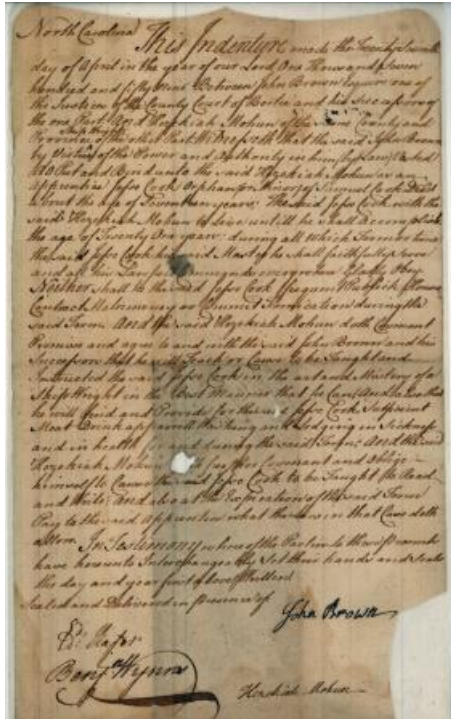 North Carolina This Indenture made the Twenty Seventh
day of April in the year of our Lord One Thousand Seven
hundred and fifty Between John Brown Esquire one of
the Justices of the County Court of Bertie and his Successors of
the one Part And Hezekiah Mohun of the Same County and
Province Ship Wright of the other Part Witnesseth that the said John Brown
by Virtue of the Power and Authority in him by Law
Put and Bynd unto the said Hezekiah Mohun as an
apprentice Jesse Cook Orphan Minor of Samuel Cook
about the age of years; The said Jesse Cook with the
said Hezekiah Mohun to Live untill he shall accomplish
the age of Twenty One years; during all which Term or time
the said Jesse Cook his said Master he shall faithfully Serve
and all his Lawful Commands every where Gladly Obey
Neither shall he the said Jesse Cook
Contract Matrimony or Commit Fornication during the
said Term. And the said Hezekiah Mohun doth Covenant
Promise and agree to and with the said John Brown and his
Successors that he will Teach or Cause to be Taught and
Instructed the said Jesse Cook in the art and Mistery of a
Ship Wright in the Best Manner that he Can; And also that
he will find and Provide for the said Jesse Cook Sufficient
Meat Drink apparell Washing and Lodging in Sickness
and in health for and during the said Term; And the said
Hezekiah Mohun Covenant and Oblige
himself to Cause the said Jesse Cook to be Taught to Read
and Write; And also at the Expiration of the said Term
Pay to the said Apprentice what the Law in that Case doth
allow. In Testimony whereof the Parties to these presents
have hereunto Interchangeably Set their hands and Seals
the day and year first above Written
Sealed and Delivered in presence of
John Brown
Benjn Wynns
Hezekiah Mohun